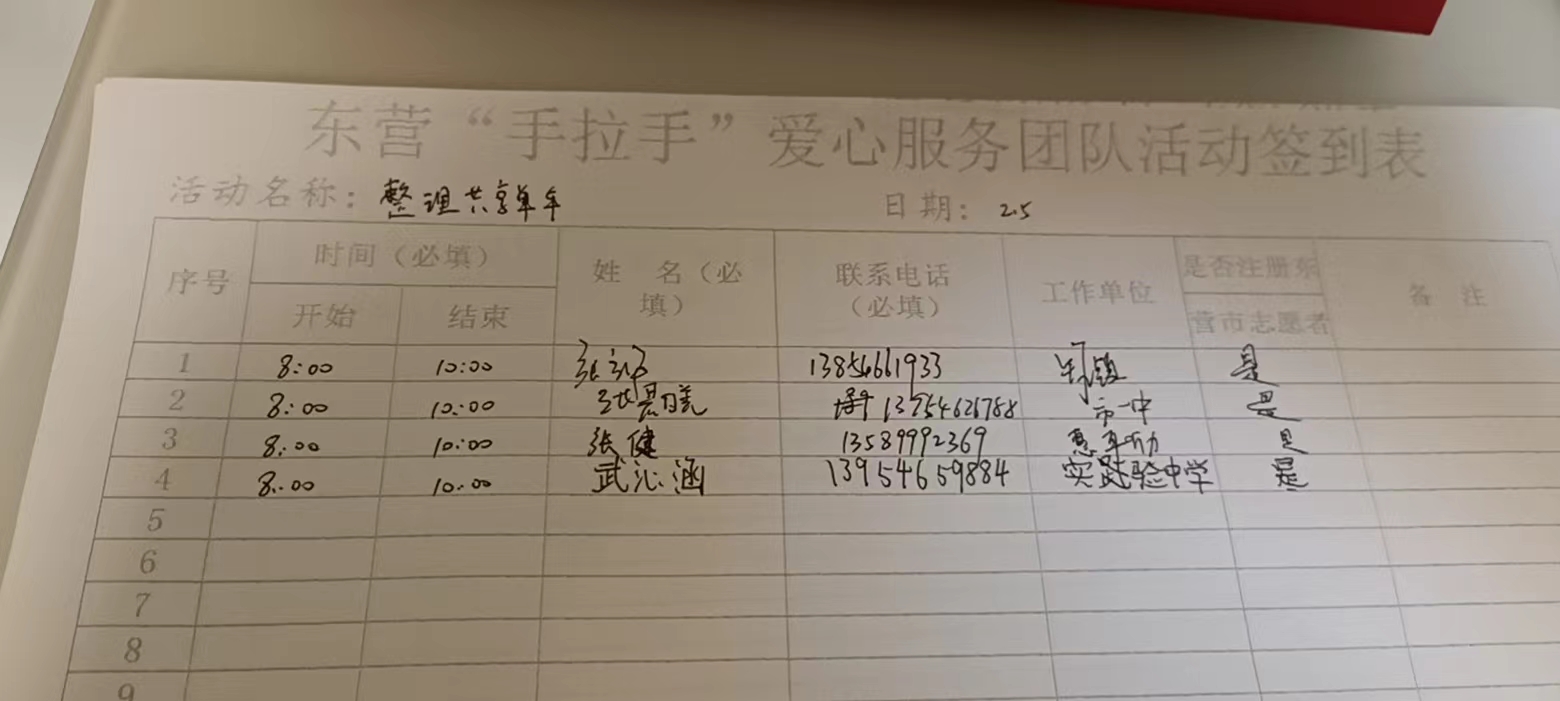 东营“手拉手”爱心服务团队活动签到表
活动名称：整理共享单车 日期：2.5
序号 时间（必填） 姓 名（必填） 联系电话（必填） 工作单位 是否注册东营市志愿者 备 注
开始 结束
1 8:00 10:00 张 13854661933 镇 是
2 8:00 10:00 张晨曦 13754626788 市一中 是
3 8:00 10:00 张健 13589992369 惠耳听力 是
4 8:00 10:00 武沁涵 13954659884 实验中学 是
5
6
7
8
9